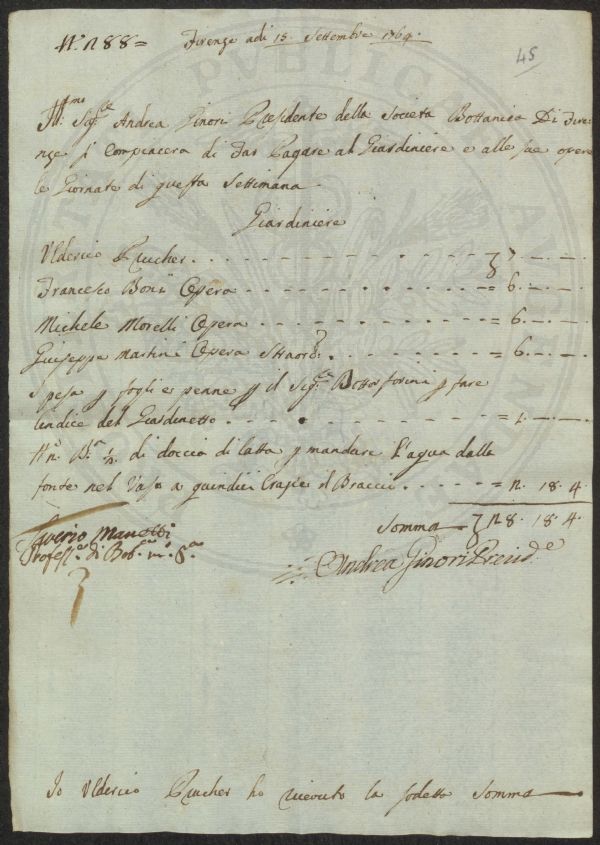 N.° 288=
Firenze adi 15. Settembre 1764.
45
Ill:mo Sig.re Andrea Ginori Presidente della Societa Bottanica Di Fire=
nze si Compiacera di Far Pagare al Giardiniere e alle sue opere
le Giornate di questa Settimana
Giardiniere
Ulderico Prucher . . . . . . . . 7. —. —.
Francesco Bonsi Opera . . . . . . . = 6. —. —.
Michele Morelli Opera . . . . . . . = 6. —. —.
Giuseppe Martini Opera Straord: . . . . . . = 6. —. —.
Spesa p fogli e penne p il Sig.re Dottor forini p fare
l'indice del Giardinetto . . . . . . = 1. —. —.
N.° B.a ½ di doccia di latta p mandare l'aqua dalla
fonte nel Vaso a quindici Crazie il Braccio . . . . = 2. 18. 4.
Somma 28. 18. 4.
Saverio Manetti
Profess.e di Bot.ca
Andrea Ginori Presid.e
Io Ulderico Prucher ho riceuto la sodetta Somma
PUBLICA